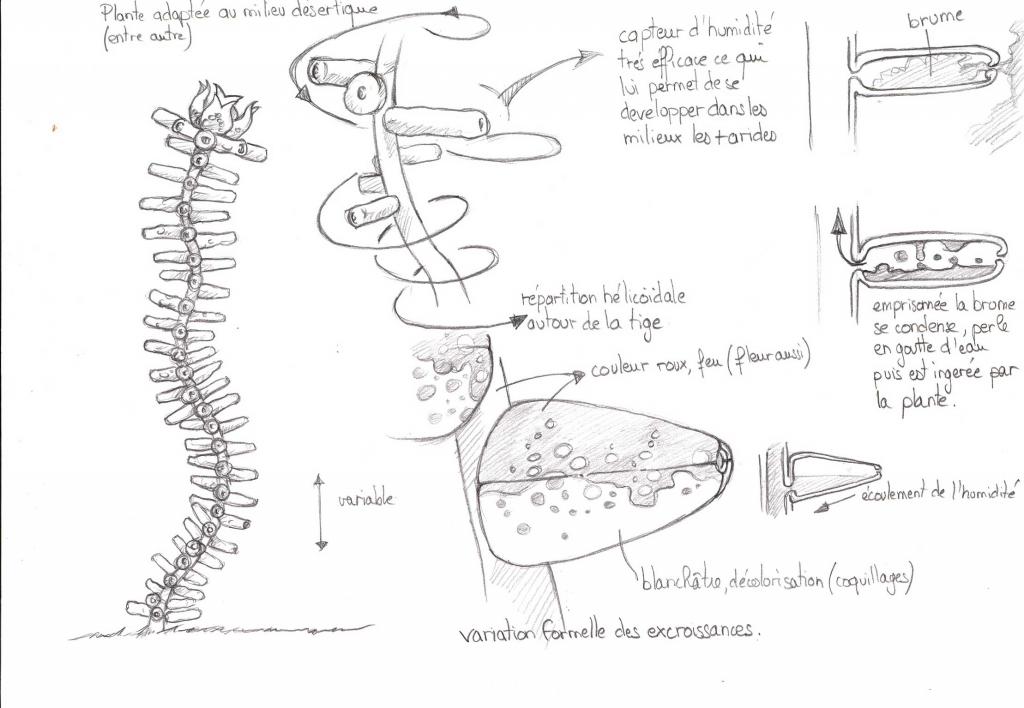 Plante adaptée au milieu désertique
(entre autre)
capteur d'humidité
trés efficace ce qui
lui permet de se
developper dans les
milieux les + arides
brume
emprisonnée la brume
se condense, perle
en goutte d'eau
puis est ingerée par
la plante.
répartition hélicoïdale
autour de la tige
couleur roux, feu (fleur aussi)
variable
écoulement de l'humidité
blanchâtre, décolorisation (coquillages)
variation formelle des excroissances.